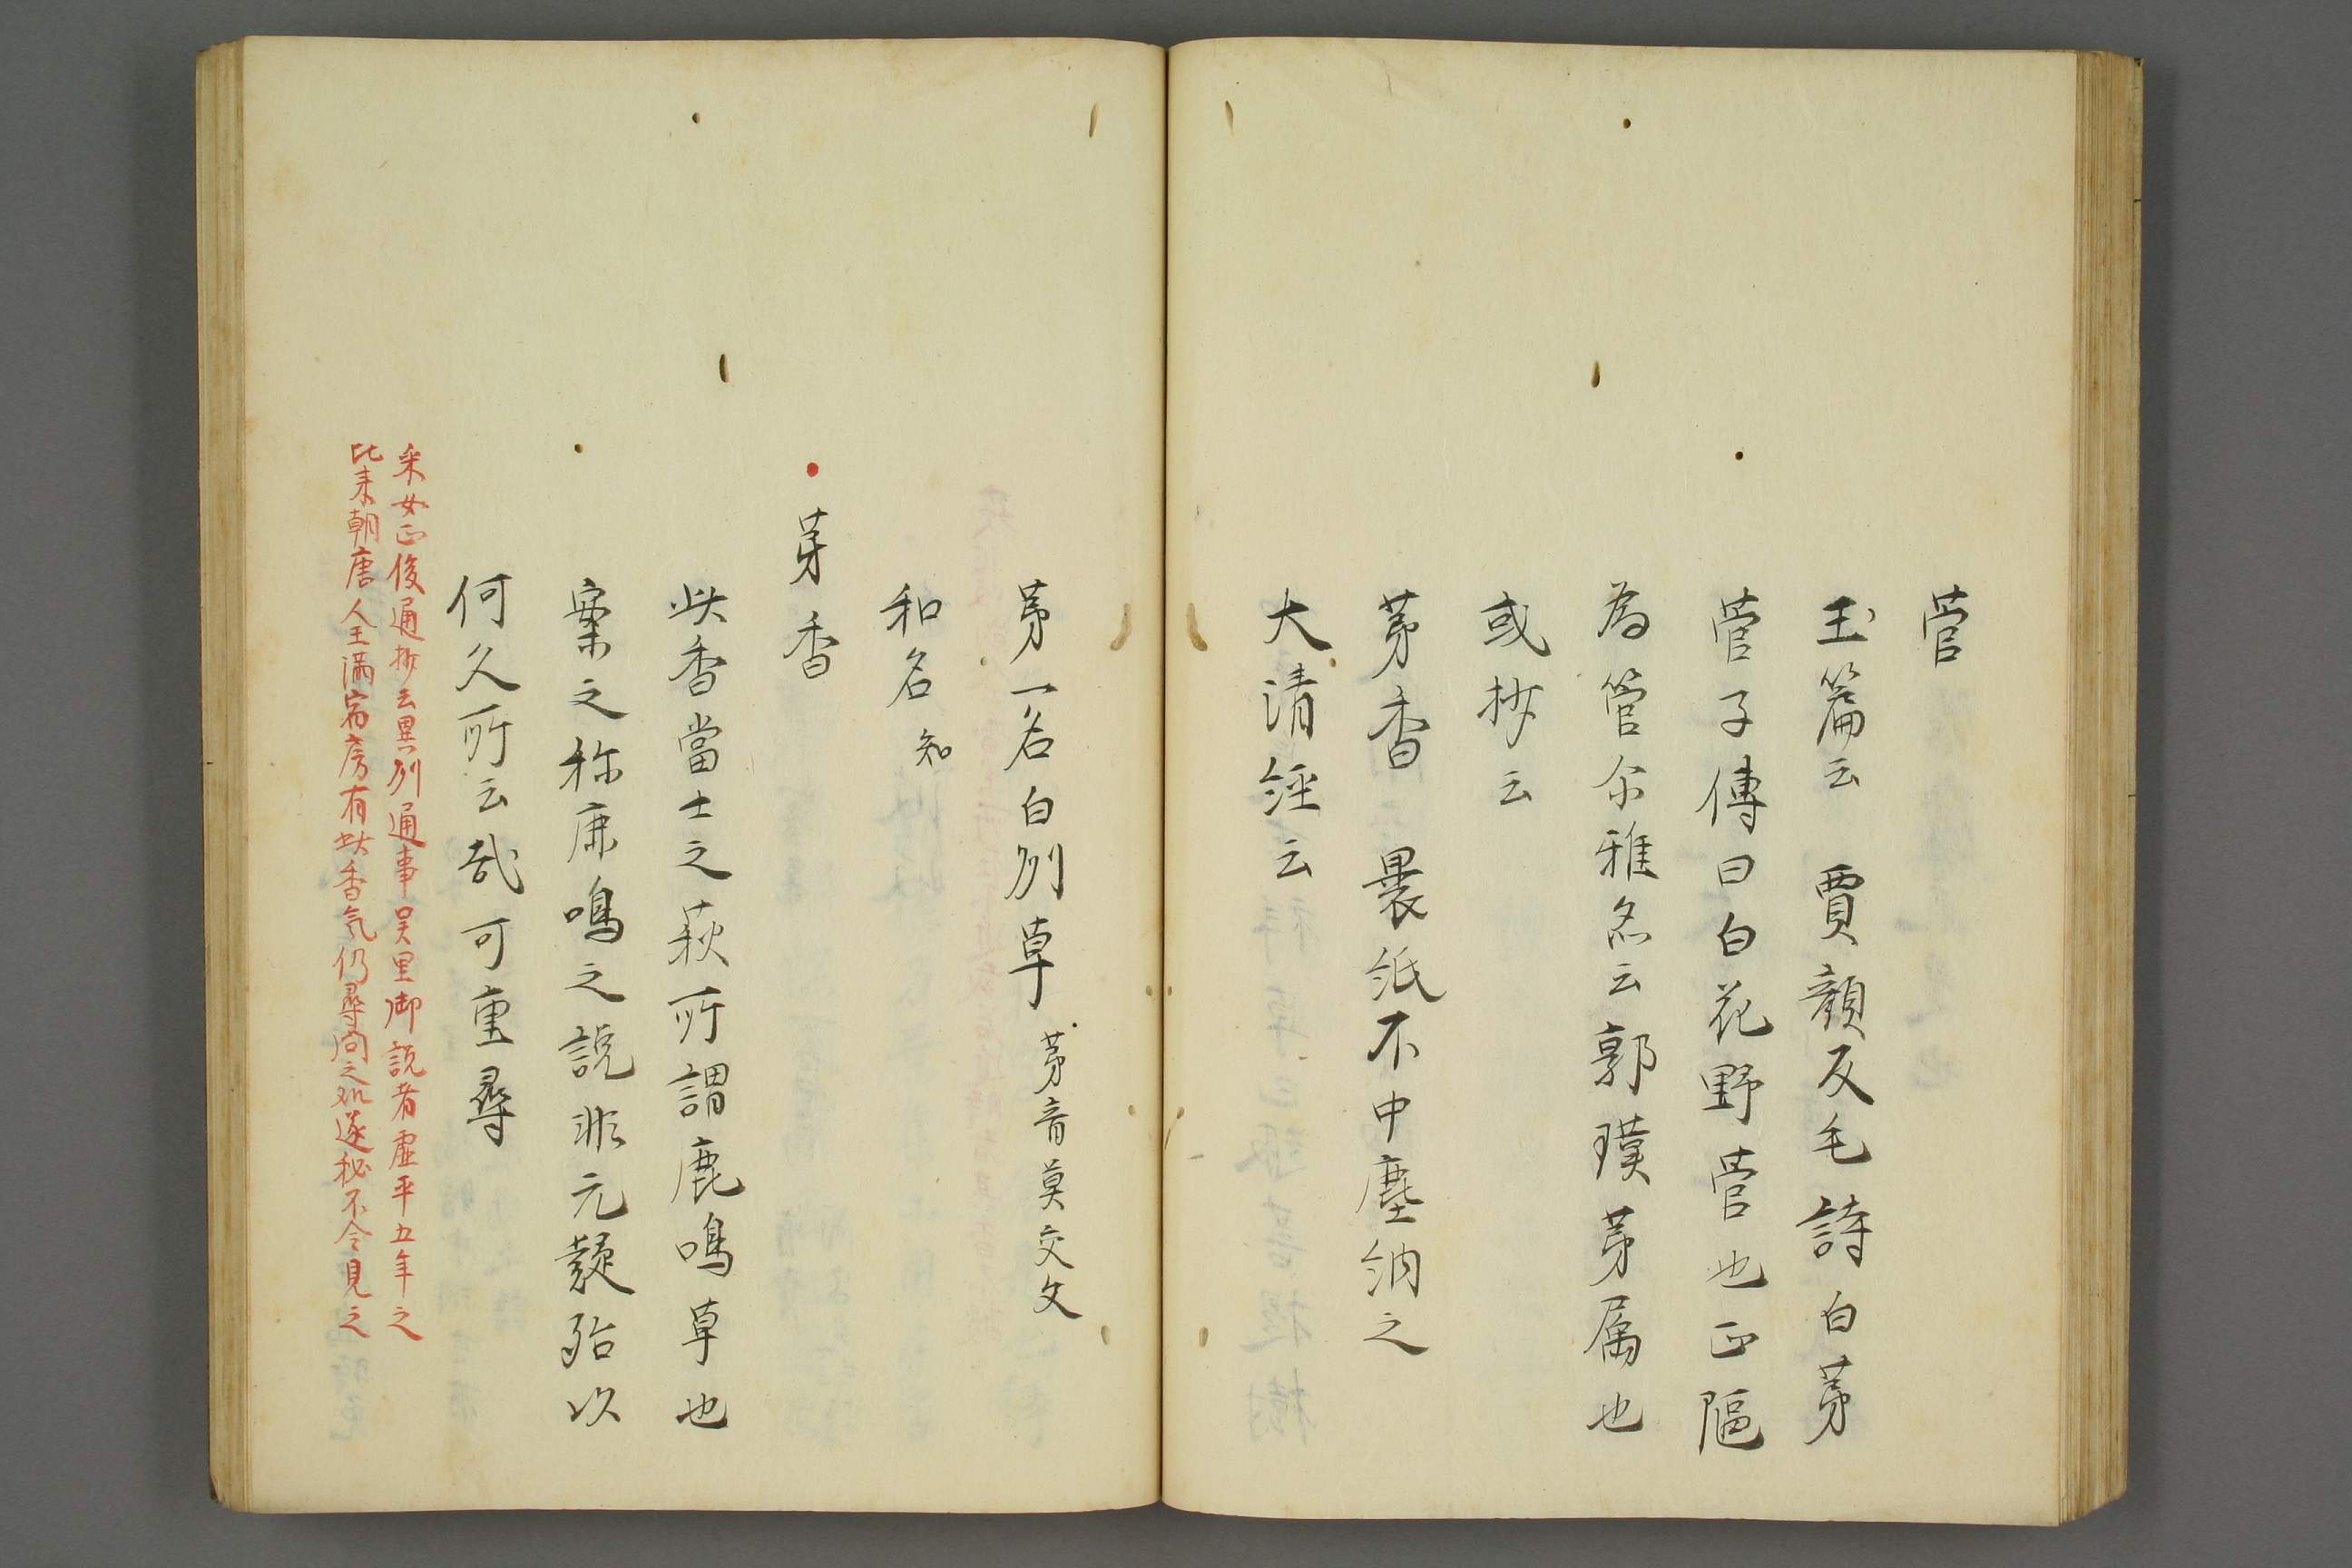 菅
玉篇云 賈顔反毛詩白茅
菅子傳曰白花野菅也正漚
為管尒雅名云郭璞茅属也
或抄云
茅香 褁紙不中塵納之
大清經云
茅一名白列草 茅音莫交文
和名知
芽香
此香當士之萩所謂鹿鳴草也
案之称鹿鳴之説非元疑殆以
何久所云哉可重尋
采女正俊通抄云異列通事吴里御説者虚平五年之
比来朝唐人王満宿房有此香気仍尋問之処遂秘不令見之